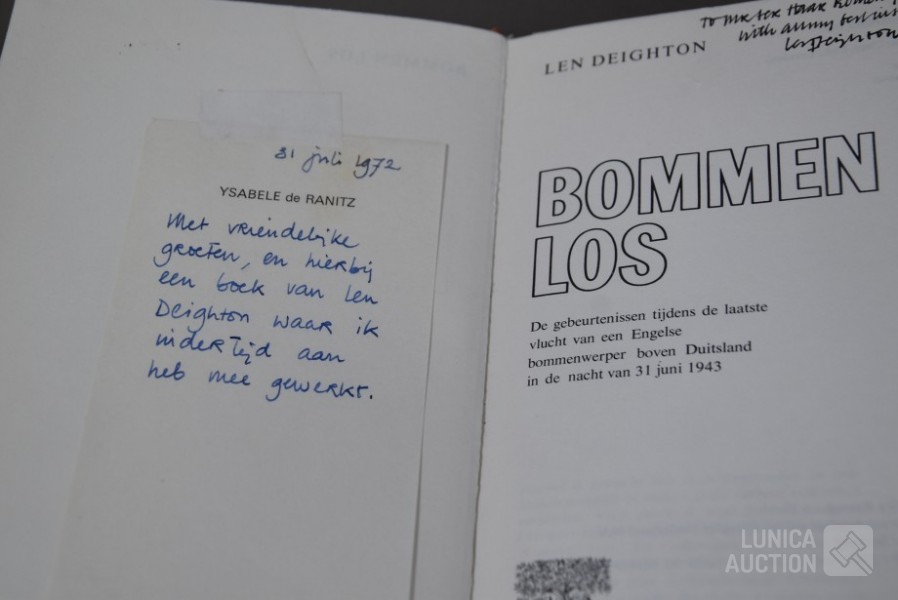 31 juli 1972
YSABELE de RANITZ
Met vriendelijke
groeten, en hierbij
een boek van Len
Deighton waar ik
indertijd aan
heb mee gewerkt.
To Mr ter Haar
with all my best
Len Deighton
LEN DEIGHTON
BOMMEN
LOS
De gebeurtenissen tijdens de laatste
vlucht van een Engelse
bommenwerper boven Duitsland
in de nacht van 31 juni 1943
LUNICA
AUCTION